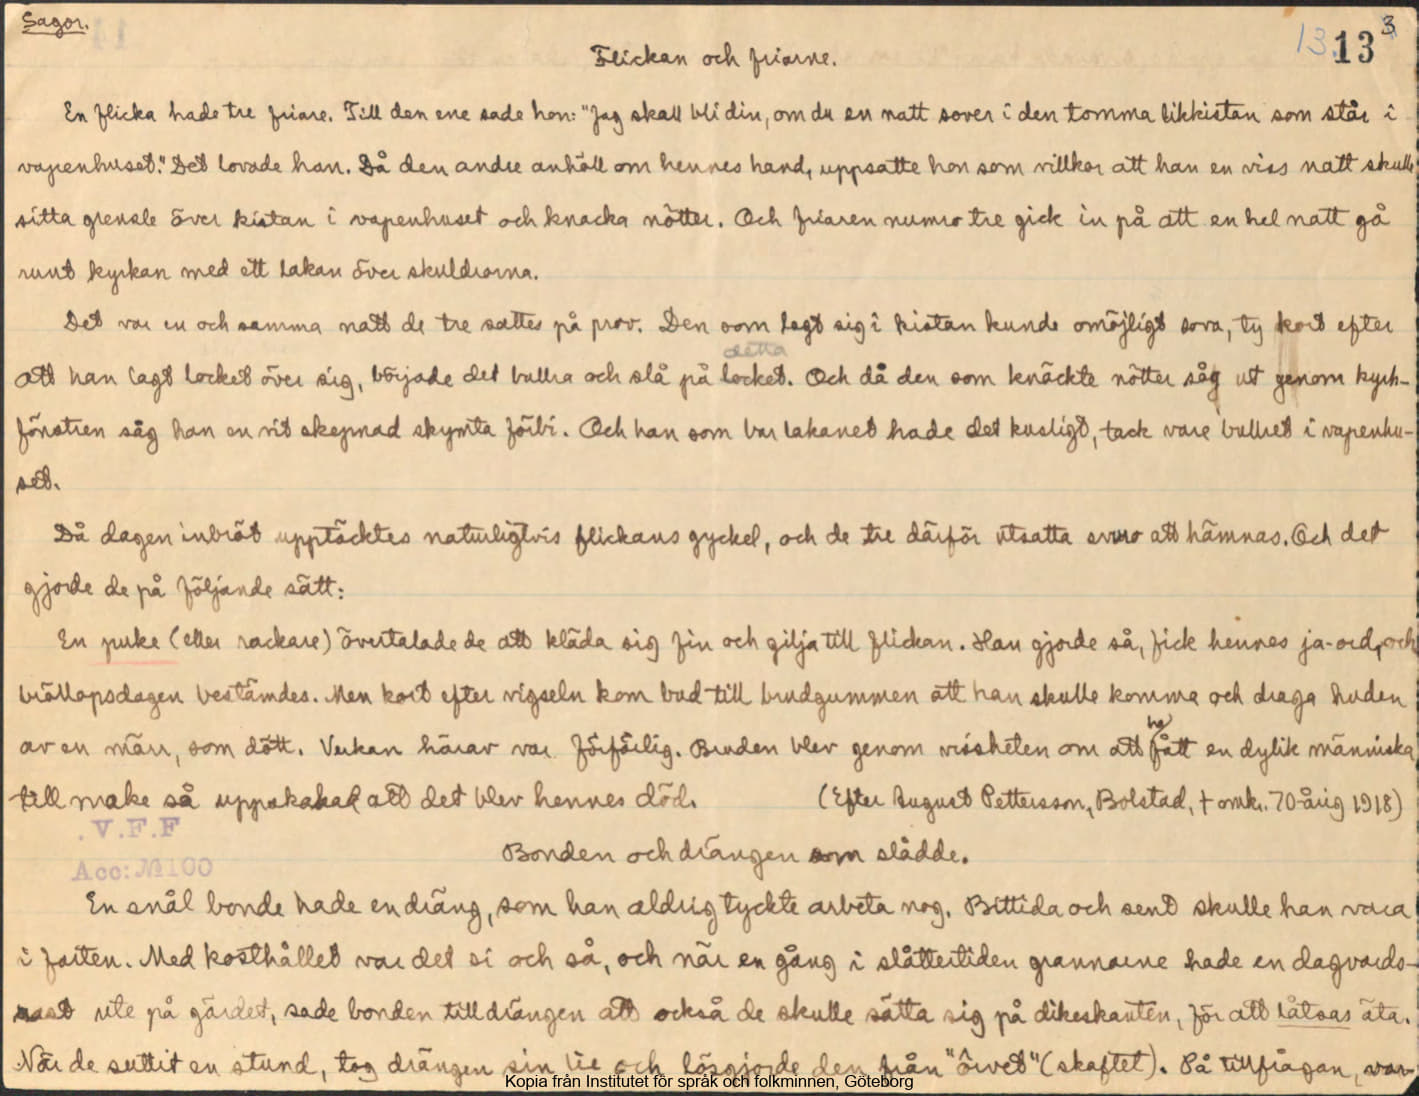 Sagor.
13 13 3
Flickan och friarne.
En flicka hade tre friare. Till den ene sade hon: "Jag skall bli din, om du en natt sover i den tomma likkistan som står i
vapenhuset." Det lovade han. Då den andre anhöll om hennes hand, uppsatte hon som villkor att han en viss natt skulle
sitta grensle över kistan i vapenhuset och knacka nötter. Och friaren numro tre gick in på att en hel natt gå
runt kyrkan med ett lakan över skuldrorna.
Det var en och samma natt de tre sattes på prov. Den som lagt sig i kistan kunde omöjligt sova, ty kort efter
detta
att han lagt locket över sig, började det bullra och slå på locket. Och då den som knäckte nötter såg ut genom kyrk-
fönstren såg han en vit skepnad skymta förbi. Och han som bar lakanet hade det kusligt, tack vare bullret i vapenhu-
set.
Då dagen inbröt upptäcktes naturligtvis flickans gyckel, och de tre därför utsatta svuro att hämnas. Och det
gjorde de på följande sätt:
En puke (eller rackare) övertalade de att kläda sig fin och gilja till flickan. Han gjorde så, fick hennes ja-ord, och
bröllopsdagen bestämdes. Men kort efter vigseln kom bud till brudgummen att han skulle komma och draga huden
av en märr, som dött. Verkan härav var förfärlig. Bruden blev genom vissheten om att ha fått en dylik människa
till make så uppskakad att det blev hennes död. (Efter August Pettersson, Bolstad, † omkr. 70-årig 1918)
V.F.F
Acc: № 100
Bonden och drängen som slådde.
En snål bonde hade en dräng, som han aldrig tyckte arbeta nog. Bittida och sent skulle han vara
i farten. Med kosthållet var det si och så, och när en gång i slåttertiden grannarne hade en dagvards-
rast ute på gärdet, sade bonden till drängen att också de skulle sätta sig på dikeskanten, för att låtsas äta.
När de suttit en stund, tog drängen sin lie och lösgjorde den från "örvet" (skaftet). På tillfrågan, var-
Kopia från Institutet för språk och folkminnen, Göteborg